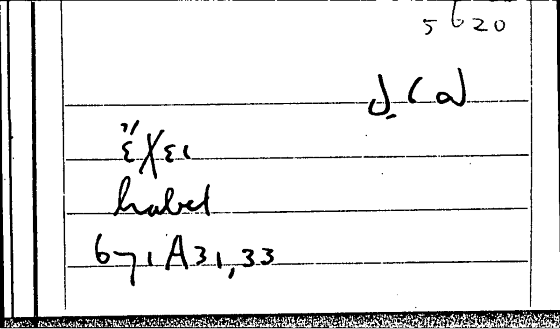 5 6 20
ἔχει
habet
671 A31,33